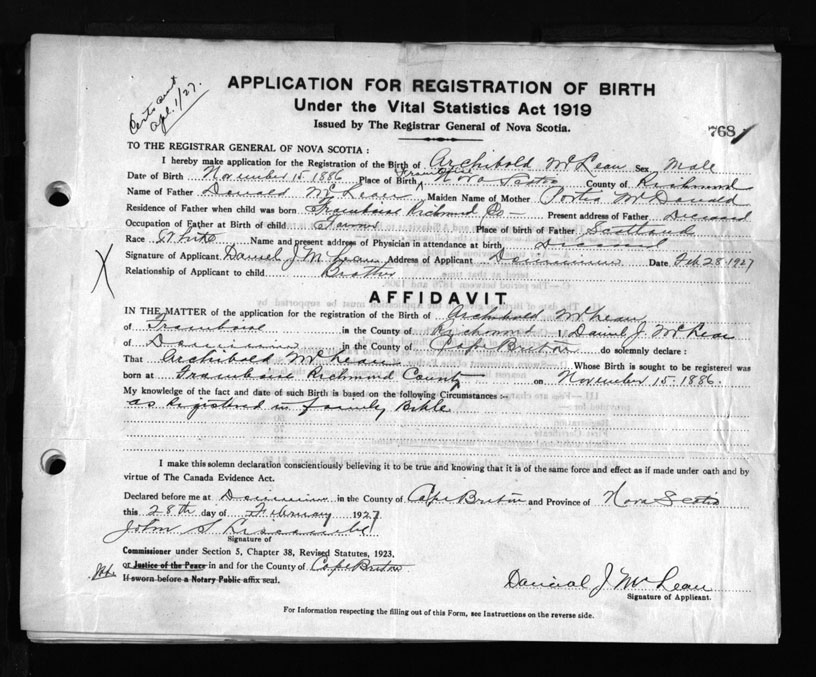 Certs sent
Apl. 1/27.
APPLICATION FOR REGISTRATION OF BIRTH
Under the Vital Statistics Act 1919
Issued by The Registrar General of Nova Scotia.
768
TO THE REGISTRAR GENERAL OF NOVA SCOTIA :
I hereby make application for the Registration of the Birth of Archibold McLean Sex Male
Date of Birth November 15. 1886 Place of Birth Framboise Nova Scotia County of Richmond
Name of Father Donald McLean Maiden Name of Mother McDonald
Residence of Father when child was born Framboise Richmond Co— Present address of Father Diceased
Occupation of Father at Birth of child Place of birth of Father Scotland
Race White Name and present address of Physician in attendance at birth Diceased
Signature of Applicant Daniel J McLean Address of Applicant Dominion Date Feb 28. 1927
Relationship of Applicant to child Brother
AFFIDAVIT
IN THE MATTER of the application for the registration of the Birth of Archibold McLean
of Framboise in the County of Richmond I, Daniel J. McLean
of Dominion in the County of Cape Breton do solemnly declare :
That Archibold McLean Whose Birth is sought to be registered was
born at Framboise Richmond County on November 15. 1886.
My knowledge of the fact and date of such Birth is based on the following Circumstances :-
as Registered in family Bible
I make this solemn declaration conscientiously believing it to be true and knowing that it is of the same force and effect as if made under oath and by
virtue of The Canada Evidence Act.
Declared before me at Dominion in the County of Cape Breton and Province of Nova Scotia
this 28th day of February 1927
John S
Signature of
Commissioner under Section 5, Chapter 38, Revised Statutes, 1923,
or Justice of the Peace in and for the County of Cape Breton
If sworn before a Notary Public affix seal.
Danieal J McLean
Signature of Applicant.
For Information respecting the filling out of this Form, see Instructions on the reverse side.